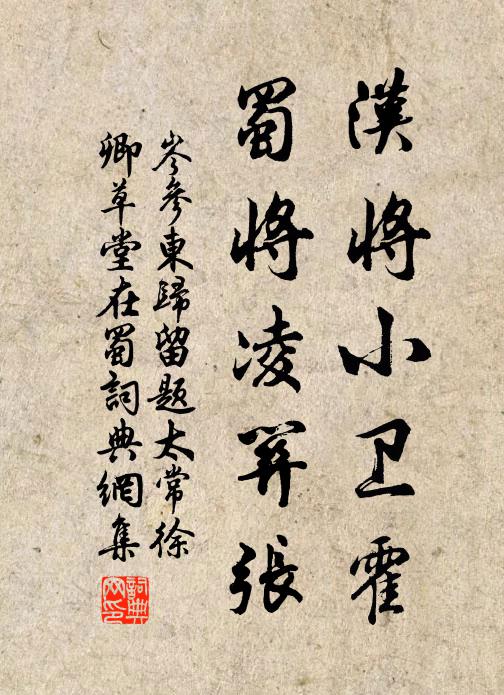 漢將小卫霍
蜀將凌关張
岑參東歸留題太常徐
卿草堂在蜀詞典網集
詞典
网印